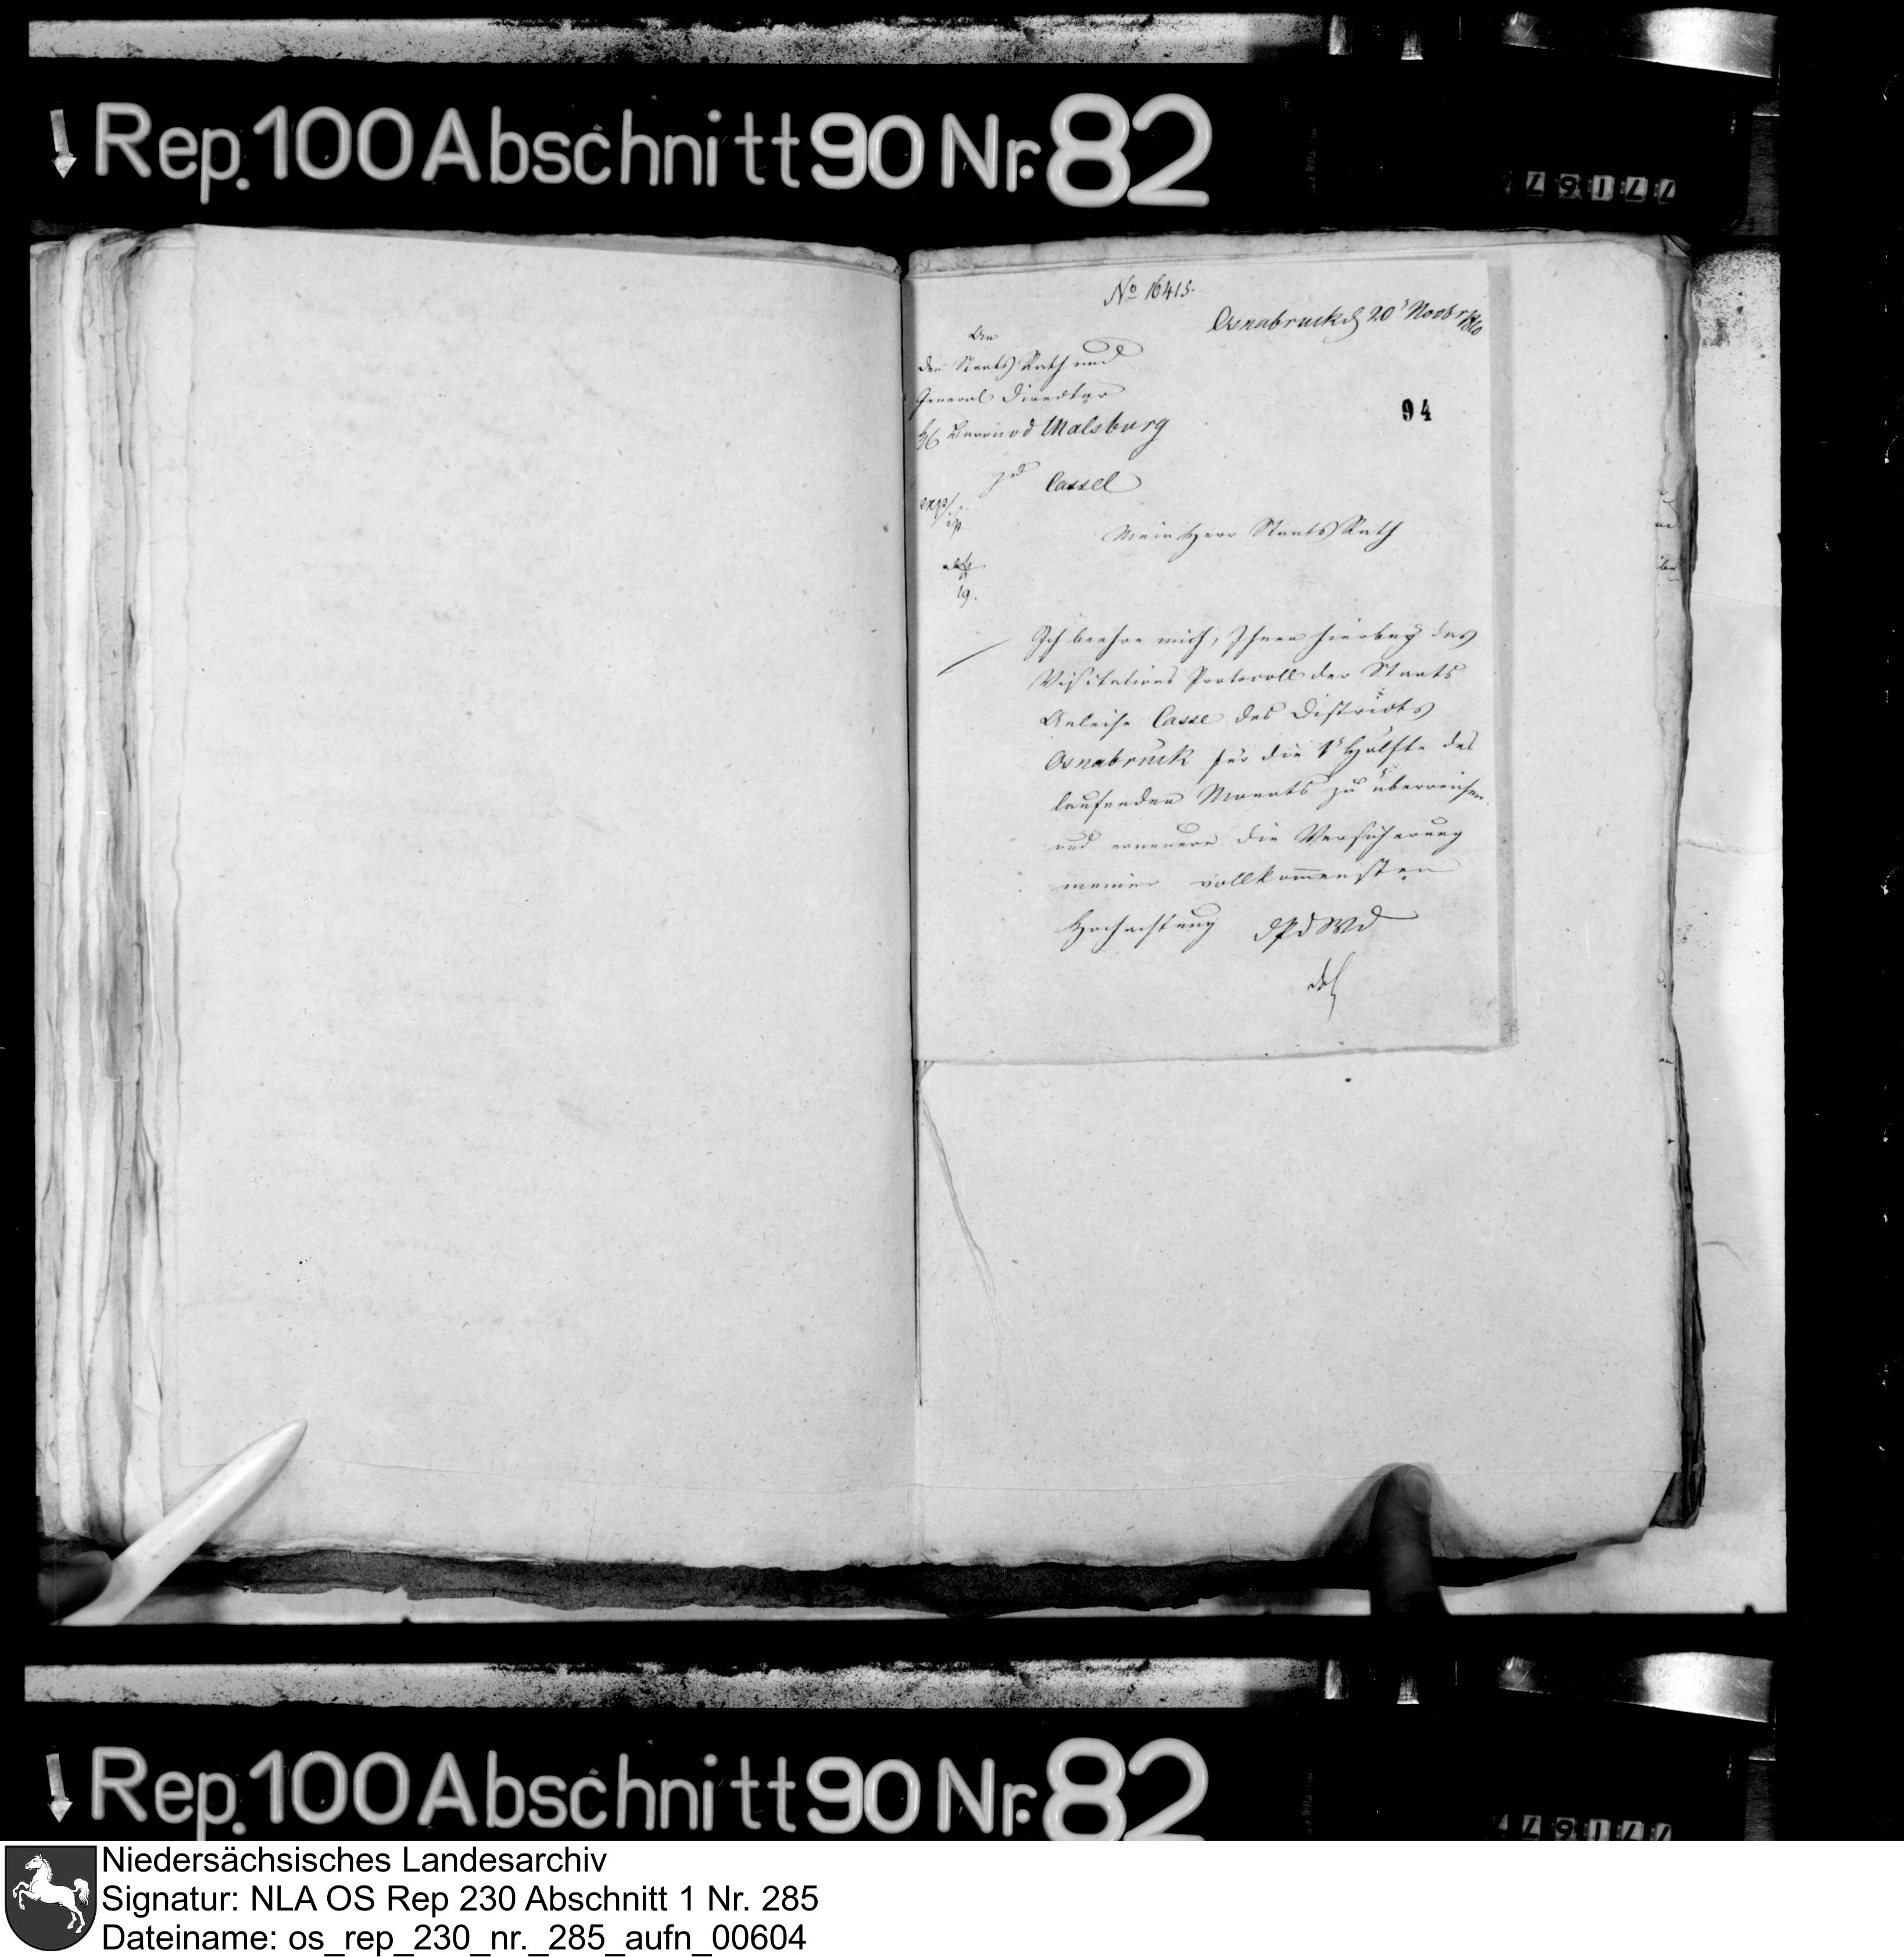 Rep. 100 Abschnitt 90 Nr. 82
No 16415.
Osnabruck d 20t Novbr 1810
An
den Staats Rath und
General Director
H Baron v d Malsburg
zu Cassel
exp
19.
94
Mein Herr Staats Rath
Ich beehre mich, Ihnen hierbey das
Visitations Protocoll der Staats
Anleihe Casse des Districts
Osnabrück für die 1t Hälfte des
laufenden Monats zu überreichen
und erneuere die Versicherung
meiner vollkommensten
Hochachtung
Rep. 100 Abschnitt 90 Nr. 82
Niedersächsisches Landesarchiv
Signatur: NLA OS Rep 230 Abschnitt 1 Nr. 285
Dateiname: os_rep_230_nr._285_aufn_00604